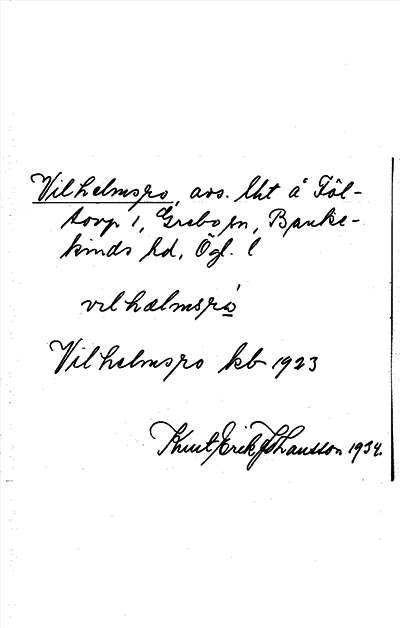 Vilhelmsro, avs. lht å Föl-
torp 1, Grebo sn, Banke-
kinds hd, Ögl. l
vilhælmsró
Vilhelmsro kb 1923
Knut Erik Johansson 1934.